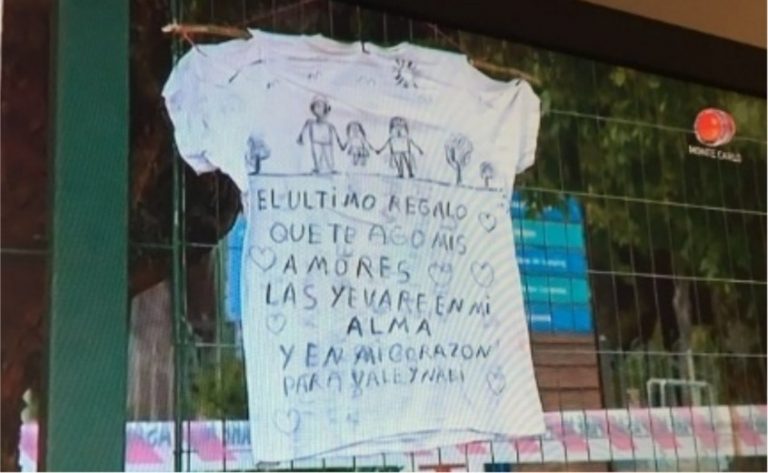 EL ULTIMO REGALO
QUE TE AGO MIS
AMORES
LAS YEVARE EN MI
ALMA
Y EN MI CORAZON
PARA VALEYNALI
MONTE CARLO